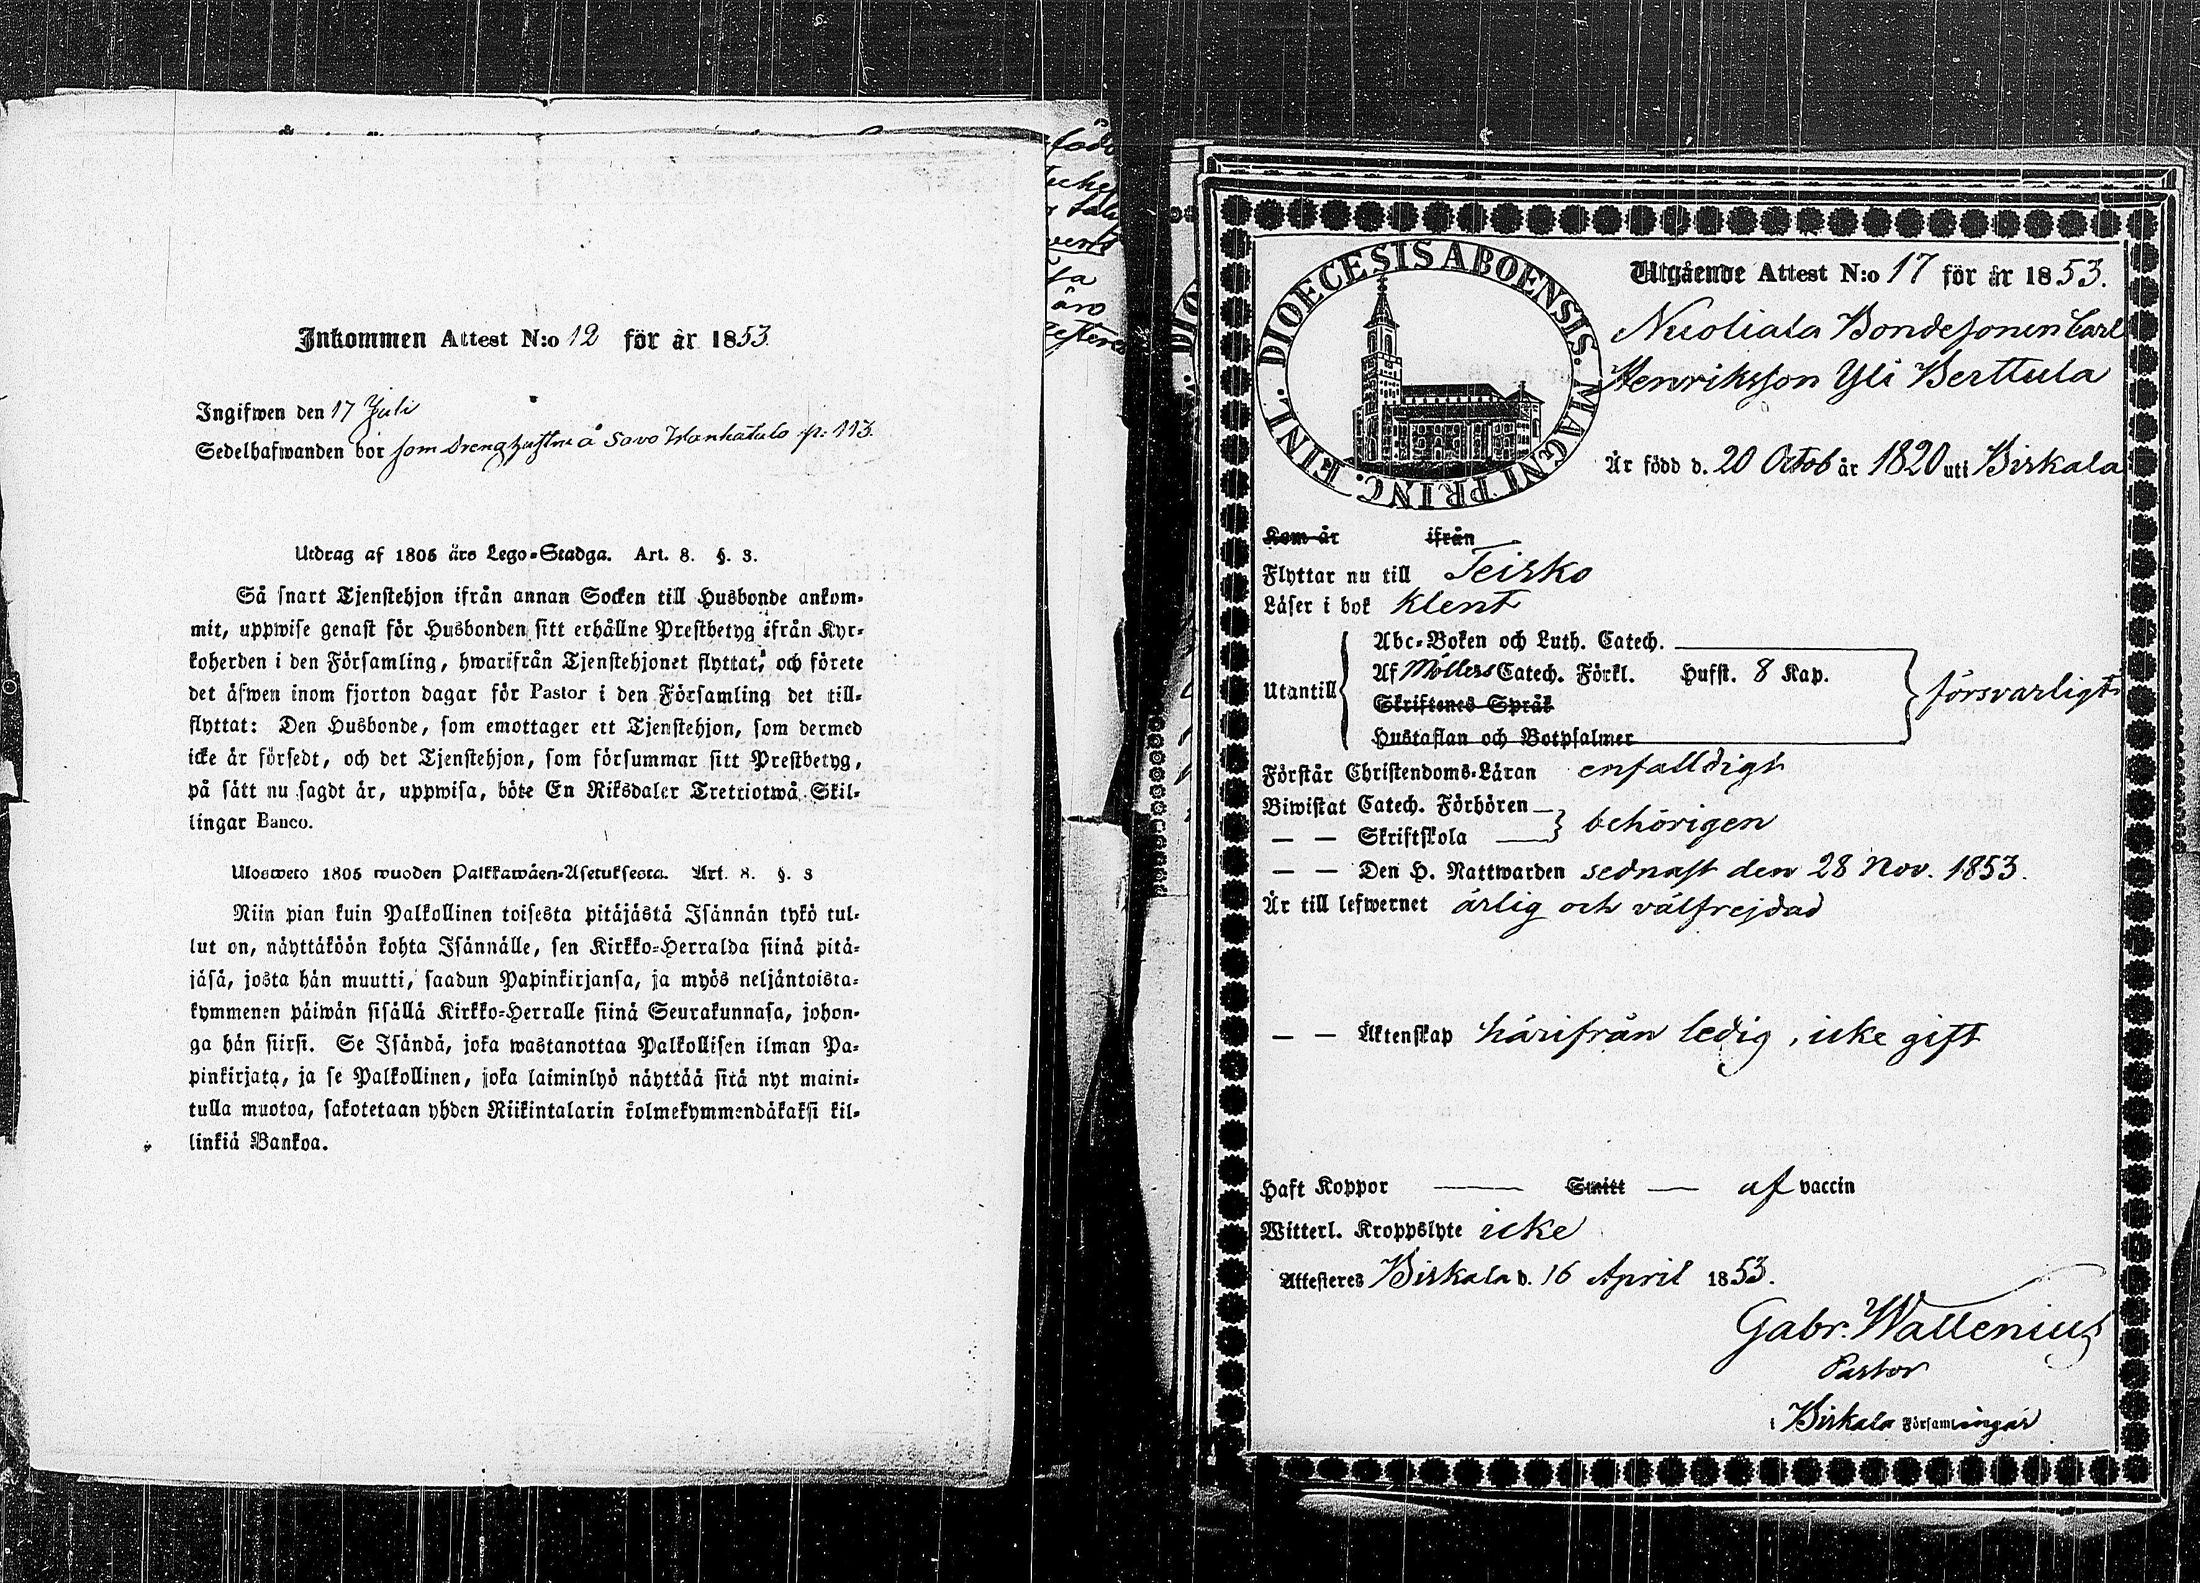 Inkommen Attest N:o 12 för år 1853
Ingifwen den 17 Juli
Sedelhafwanden bor som å Savo p: 113.
Utdrag af 1805 års Lego-Stadga. Art. 8. §. 3.
Så snart Tjenstehjon ifrån annan Socken till Husbonde ankom-
mit, uppwise genast för Husbonden sitt erhållne Prestbetyg ifrån Kyr-
koherden i den Församling, hwarifrån Tjenstehjonet flyttat, och förete
det äfwen inom fjorton dagar för Pastor i den Församling det till-
flyttat: Den Husbonde, som emottager ett Tjenstehjon, som dermed
icke är försedt, och det Tjenstehjon, som försummar sitt Prestbetyg,
på sätt nu sagdt är, uppwisa, böte En Riksdaler Trettiotwå Skil-
lingar Banco.
Ulosweto 1805 wuoden Palkkawäen-Asetuksesta. Art. 8. §. 3
Niin pian kuin Palkollinen toisesta pitäjästä Isännän tykö tul-
lut on, näyttäköön kohta Isännälle, sen Kirkko-Herralda siinä pitä-
jäsä, josta hän muutti, saadun Papinkirjansa, ja myös neljäntoista-
kymmenen päiwän sisällä Kirkko-Herralle siinä Seurakunnasa, johon-
ga hän siirsi. Se Isändä, joka wastanottaa Palkollisen ilman Pa-
pinkirjata, ja se Palkollinen, joka laiminlyö näyttää sitä nyt maini-
tulla muotoa, sakotetaan yhden Riikintalarin kolmekymmendäkaksi kil-
linkiä Bankoa.
DIOECESIS ABOENSIS. MAGNI PRINC. FINL.
Utgående Attest N:o 17 för år 1853.
Nuoliala Bondesonen Carl
Henriksson Yli Berttula
Är född d. 20 Octob år 1820 uti Birkala
Kom år ifrån
Flyttar nu till Teisko
Läser i bok klent
Utantill
Abc-Boken och Luth. Catech.
Af Möllers Catech. Förkl. Hufst. 8 Kap.
Skriftenes Språk
Hustaflan och Botpsalmer
försvarligt
Förstår Christendoms-Läran enfalldigt
Biwistat Catech. Förhören
— — Skriftskola
behörigen
— — Den H. Nattwarden sednast den 28 Nov. 1853.
Är till lefwernet ärlig och välfrejdad
— — Äktenskap härifrån ledig, icke gift
Haft Koppor — Smitt — af vaccin
Witterl. Kroppslyte icke
Attesteres Birkala d. 16 April 1853.
Gabr. Wallenius
Pastor
i Birkala Församlingar